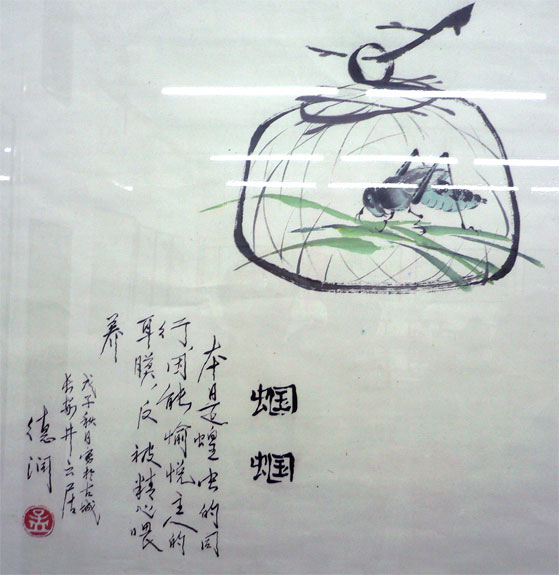 蝈蝈
本是蝗虫的同
行,因能愉悦主人的
耳膜,反被精心喂
养
戊子秋月写于古城
长安井云居
德润
孟